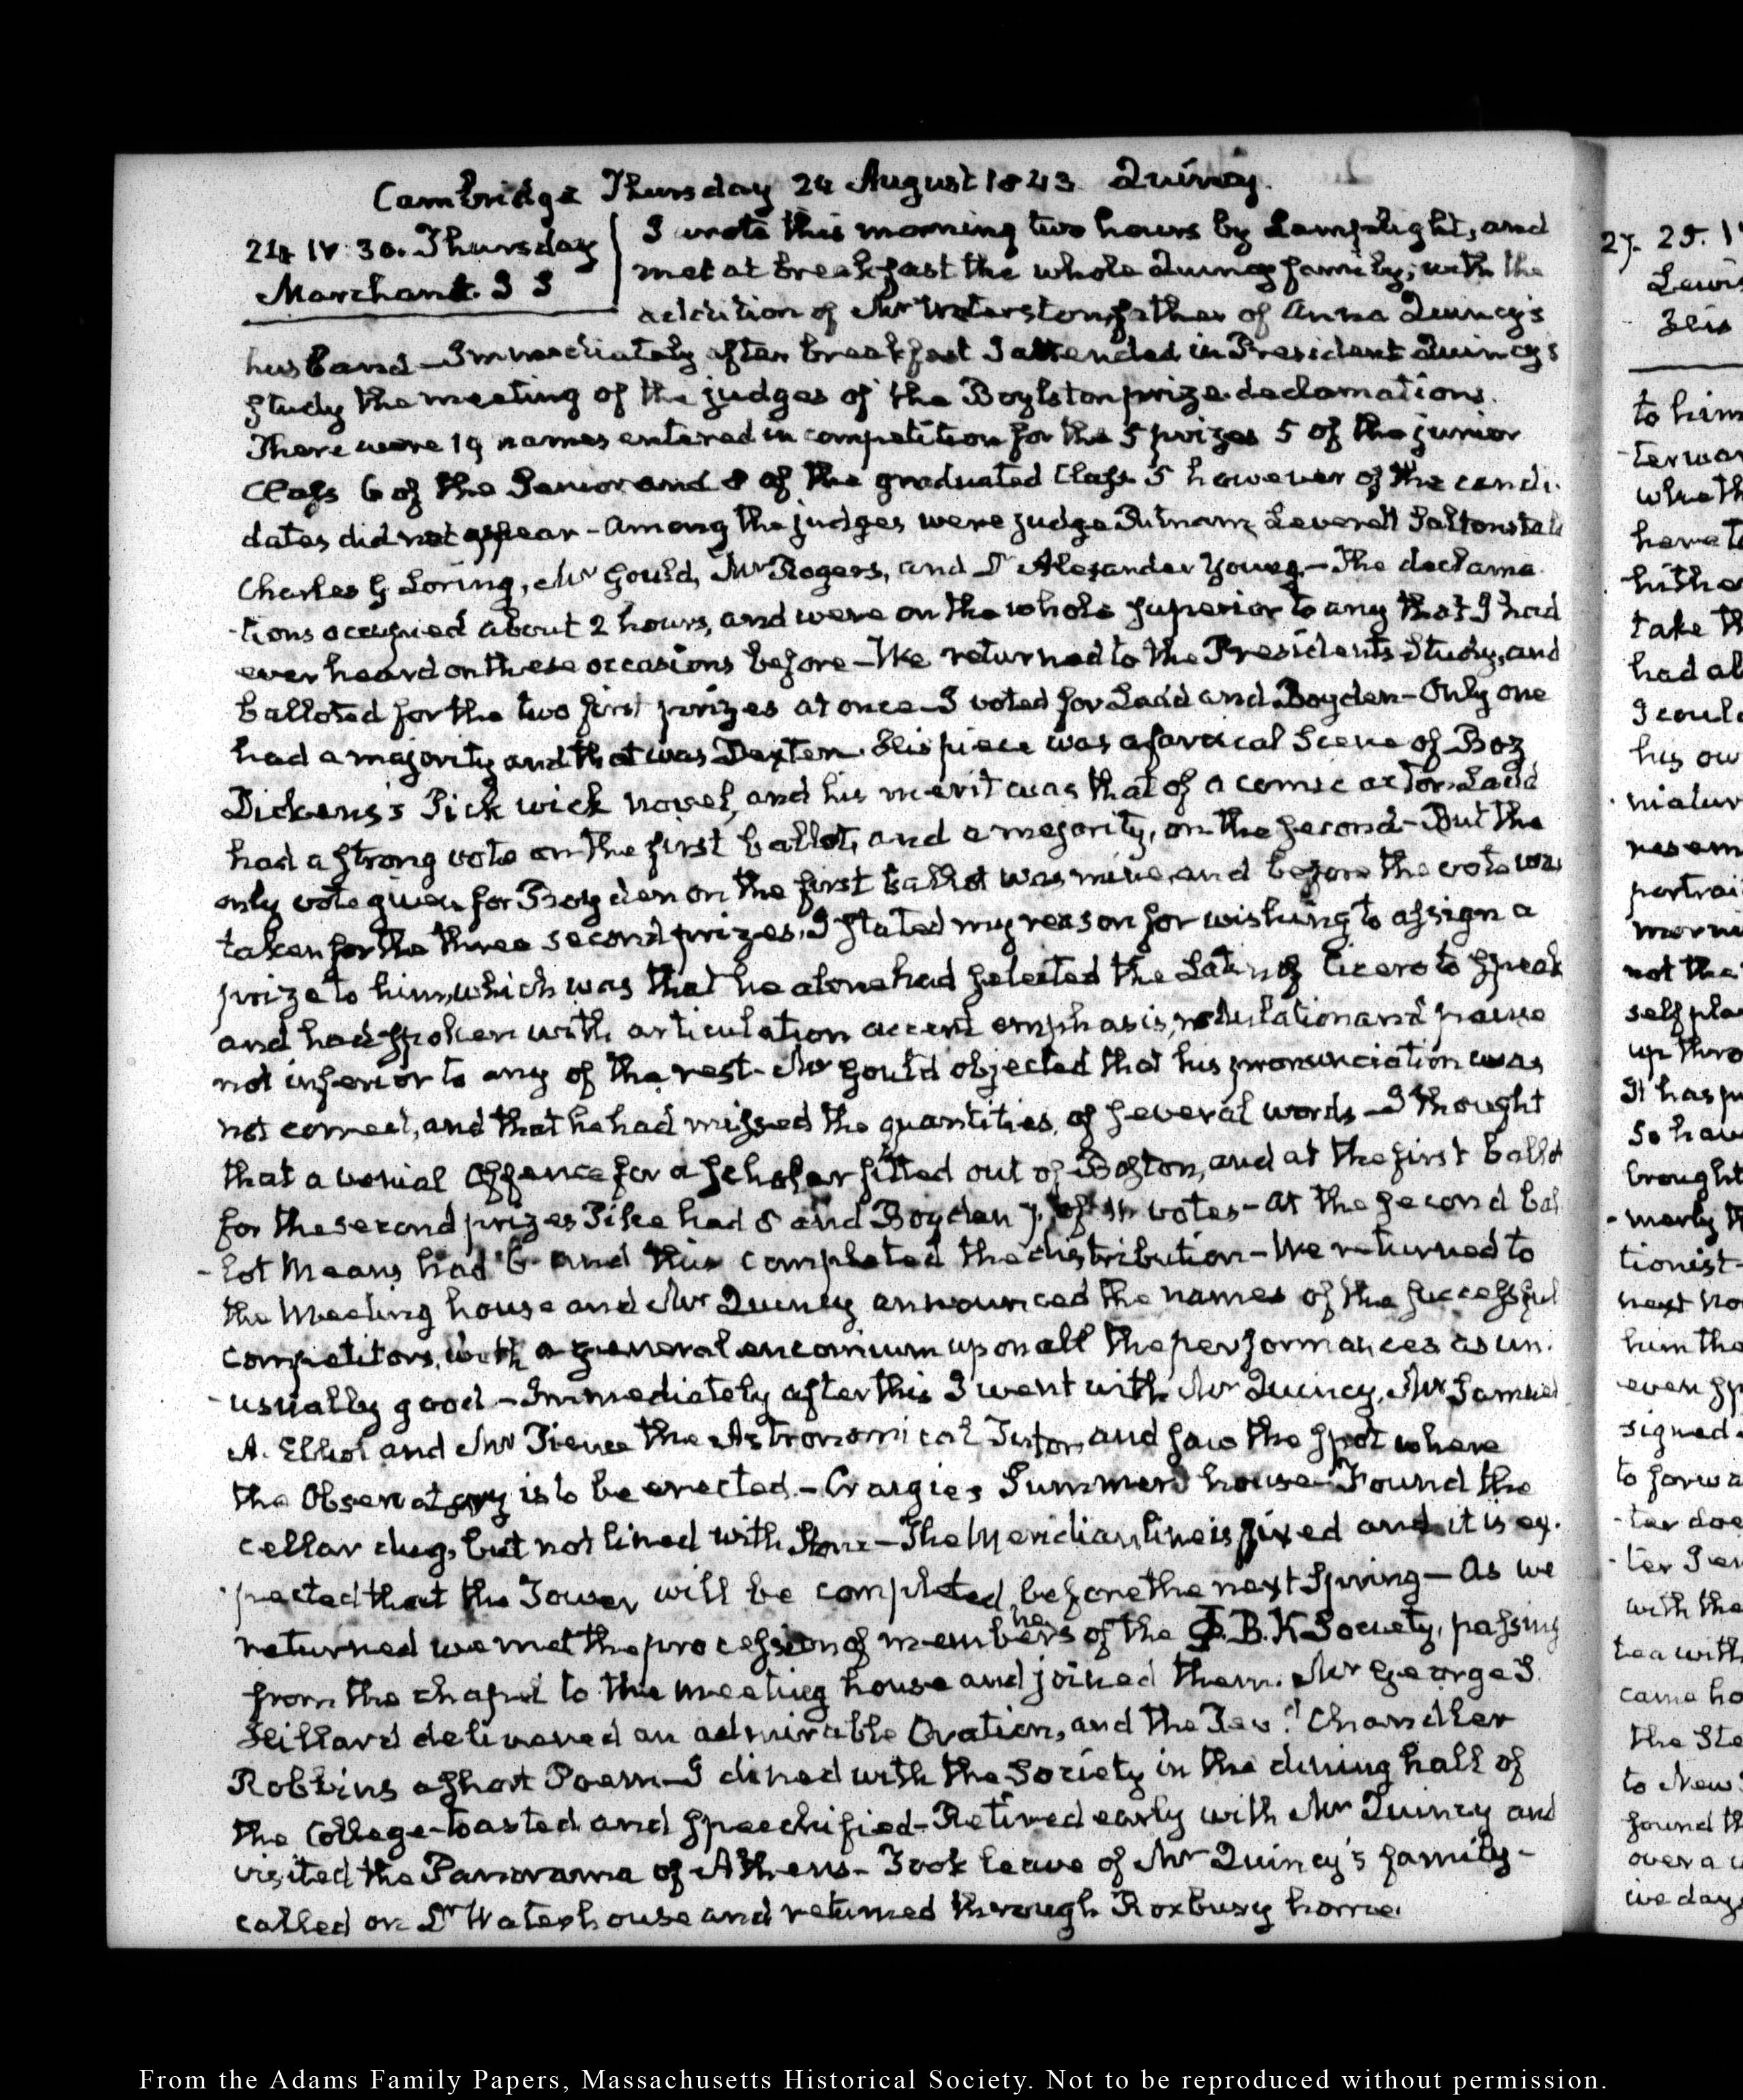 Cambridge Thursday 24 August 1843. Quincy.
24. IV. 30. Thursday
Marchant. S S
I wrote this morning two hours by Lamplight, and
met at breakfast the whole Quincy family; with the
addition of Mr Waterston, father of Anna Quincy's
husband—Immediately after breakfast I attended in President Quincy's
study the meeting of the judges of the Boylston prize declamations.
There were 19 names entered in competition for the 5 prizes 5 of the junior
Class 6 of the Senior and 8 of the graduated Class. 5 however of the candi-
dates did not appear—Among the judges were judge Putnam, Leverett Saltonstall
Charles G Loring, Mr Gould, Mr Rogers, and Dr Alexander Young—The declama-
-tions occupied about 2 hours, and were on the whole superior to any that I had
ever heard on these occasions before—We returned to the President's Study, and
balloted for the two first prizes at once—I voted for Ladd and Boyden—Only one
had a majority and that was Dexter. His piece was a farcical Scene of Boz
Dickens's Pickwick novel, and his merit was that of a comic actor. Ladd
had a strong vote on the first ballot, and a majority, on the second—But the
only vote given for Boyden on the first ballot was mine, and before the vote was
taken for the three second prizes, I stated my reason for wishing to assign a
prize to him, which was that he alone had selected the Latin of Cicero to speak
and had spoken with articulation accent emphasis, modulation and pause
not inferior to any of the rest—Mr Gould objected that his pronunciation was
not correct, and that he had missed the quantities of several words—I thought
that a venial offence for a scholar fitted out of Boston, and at the first ballot
for the second prizes Pike had 8 and Boyden 7. of votes—At the second bal
-lot Means had 6 and this completed the distribution—We returned to
the Meeting house and Mr Quincy announced the names of the successful
competitors, with a general encomium upon all the performances as un-
-usually good—Immediately after this I went with Mr Quincy, Mr Samuel
A. Elliot and Mr Pierce the Astronomical Tutor, and saw the spot where
the Observatory is to be erected.—Craigie's Summer house—Found the
cellar dug, but not lined with stone—The Meridian line is fixed and it is ex-
-pected that the Tower will be completed before the next Spring—As we
returned we met the procession of members of the Φ.B.K Society, passing
from the chapel to the meeting house and joined them. Mr George S.
Hillard delivered an admirable Oration, and the Revd Chandler
Robbins a short Poem—I dined with the Society in the dining hall of
the College—toasted and speechified—Retired early with Mr Quincy and
visited the Panorama of Athens—Took leave of Mr Quincy's family—
called on Dr Waterhouse and returned through Roxbury home.
25.
Lewis
to him
had al
I coul
his ow
portrai
not the
self pla
up thro
It has
brought
tionist
him the
signed
to forwa
with the
tea with
came ho
to New
found th
over a
From the Adams Family Papers, Massachusetts Historical Society. Not to be reproduced without permission.